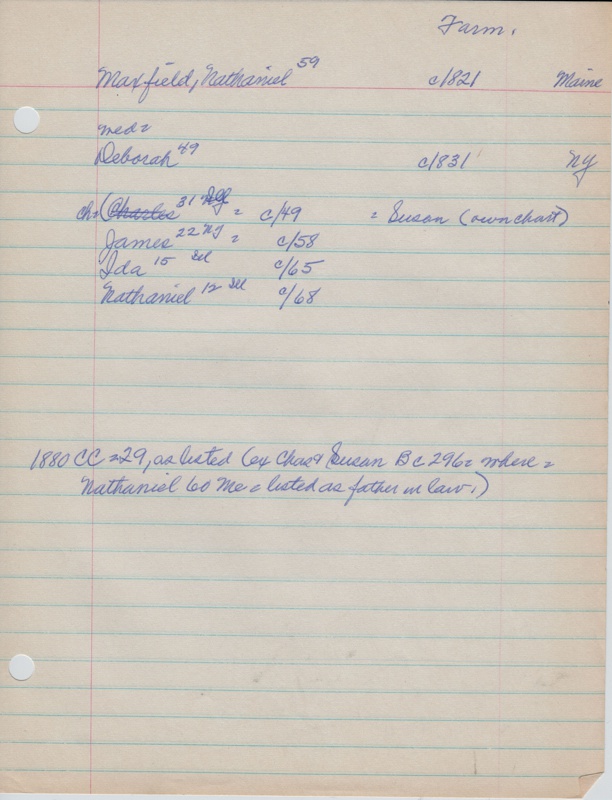 Farm.
Maxfield, Nathaniel 59 c/1821 Maine
med=
Deborah 49 c/1831 NY
ch= (Charles 31 = c/49 = Susan (own chart)
James 22 NJ = c/58
Ida 15 Del c/65
Nathaniel 12 Del c/68
1880 CC = 29, as listed (ex Chas & Susan BC 296= where =
Nathaniel 60 Me = listed as father in law.)